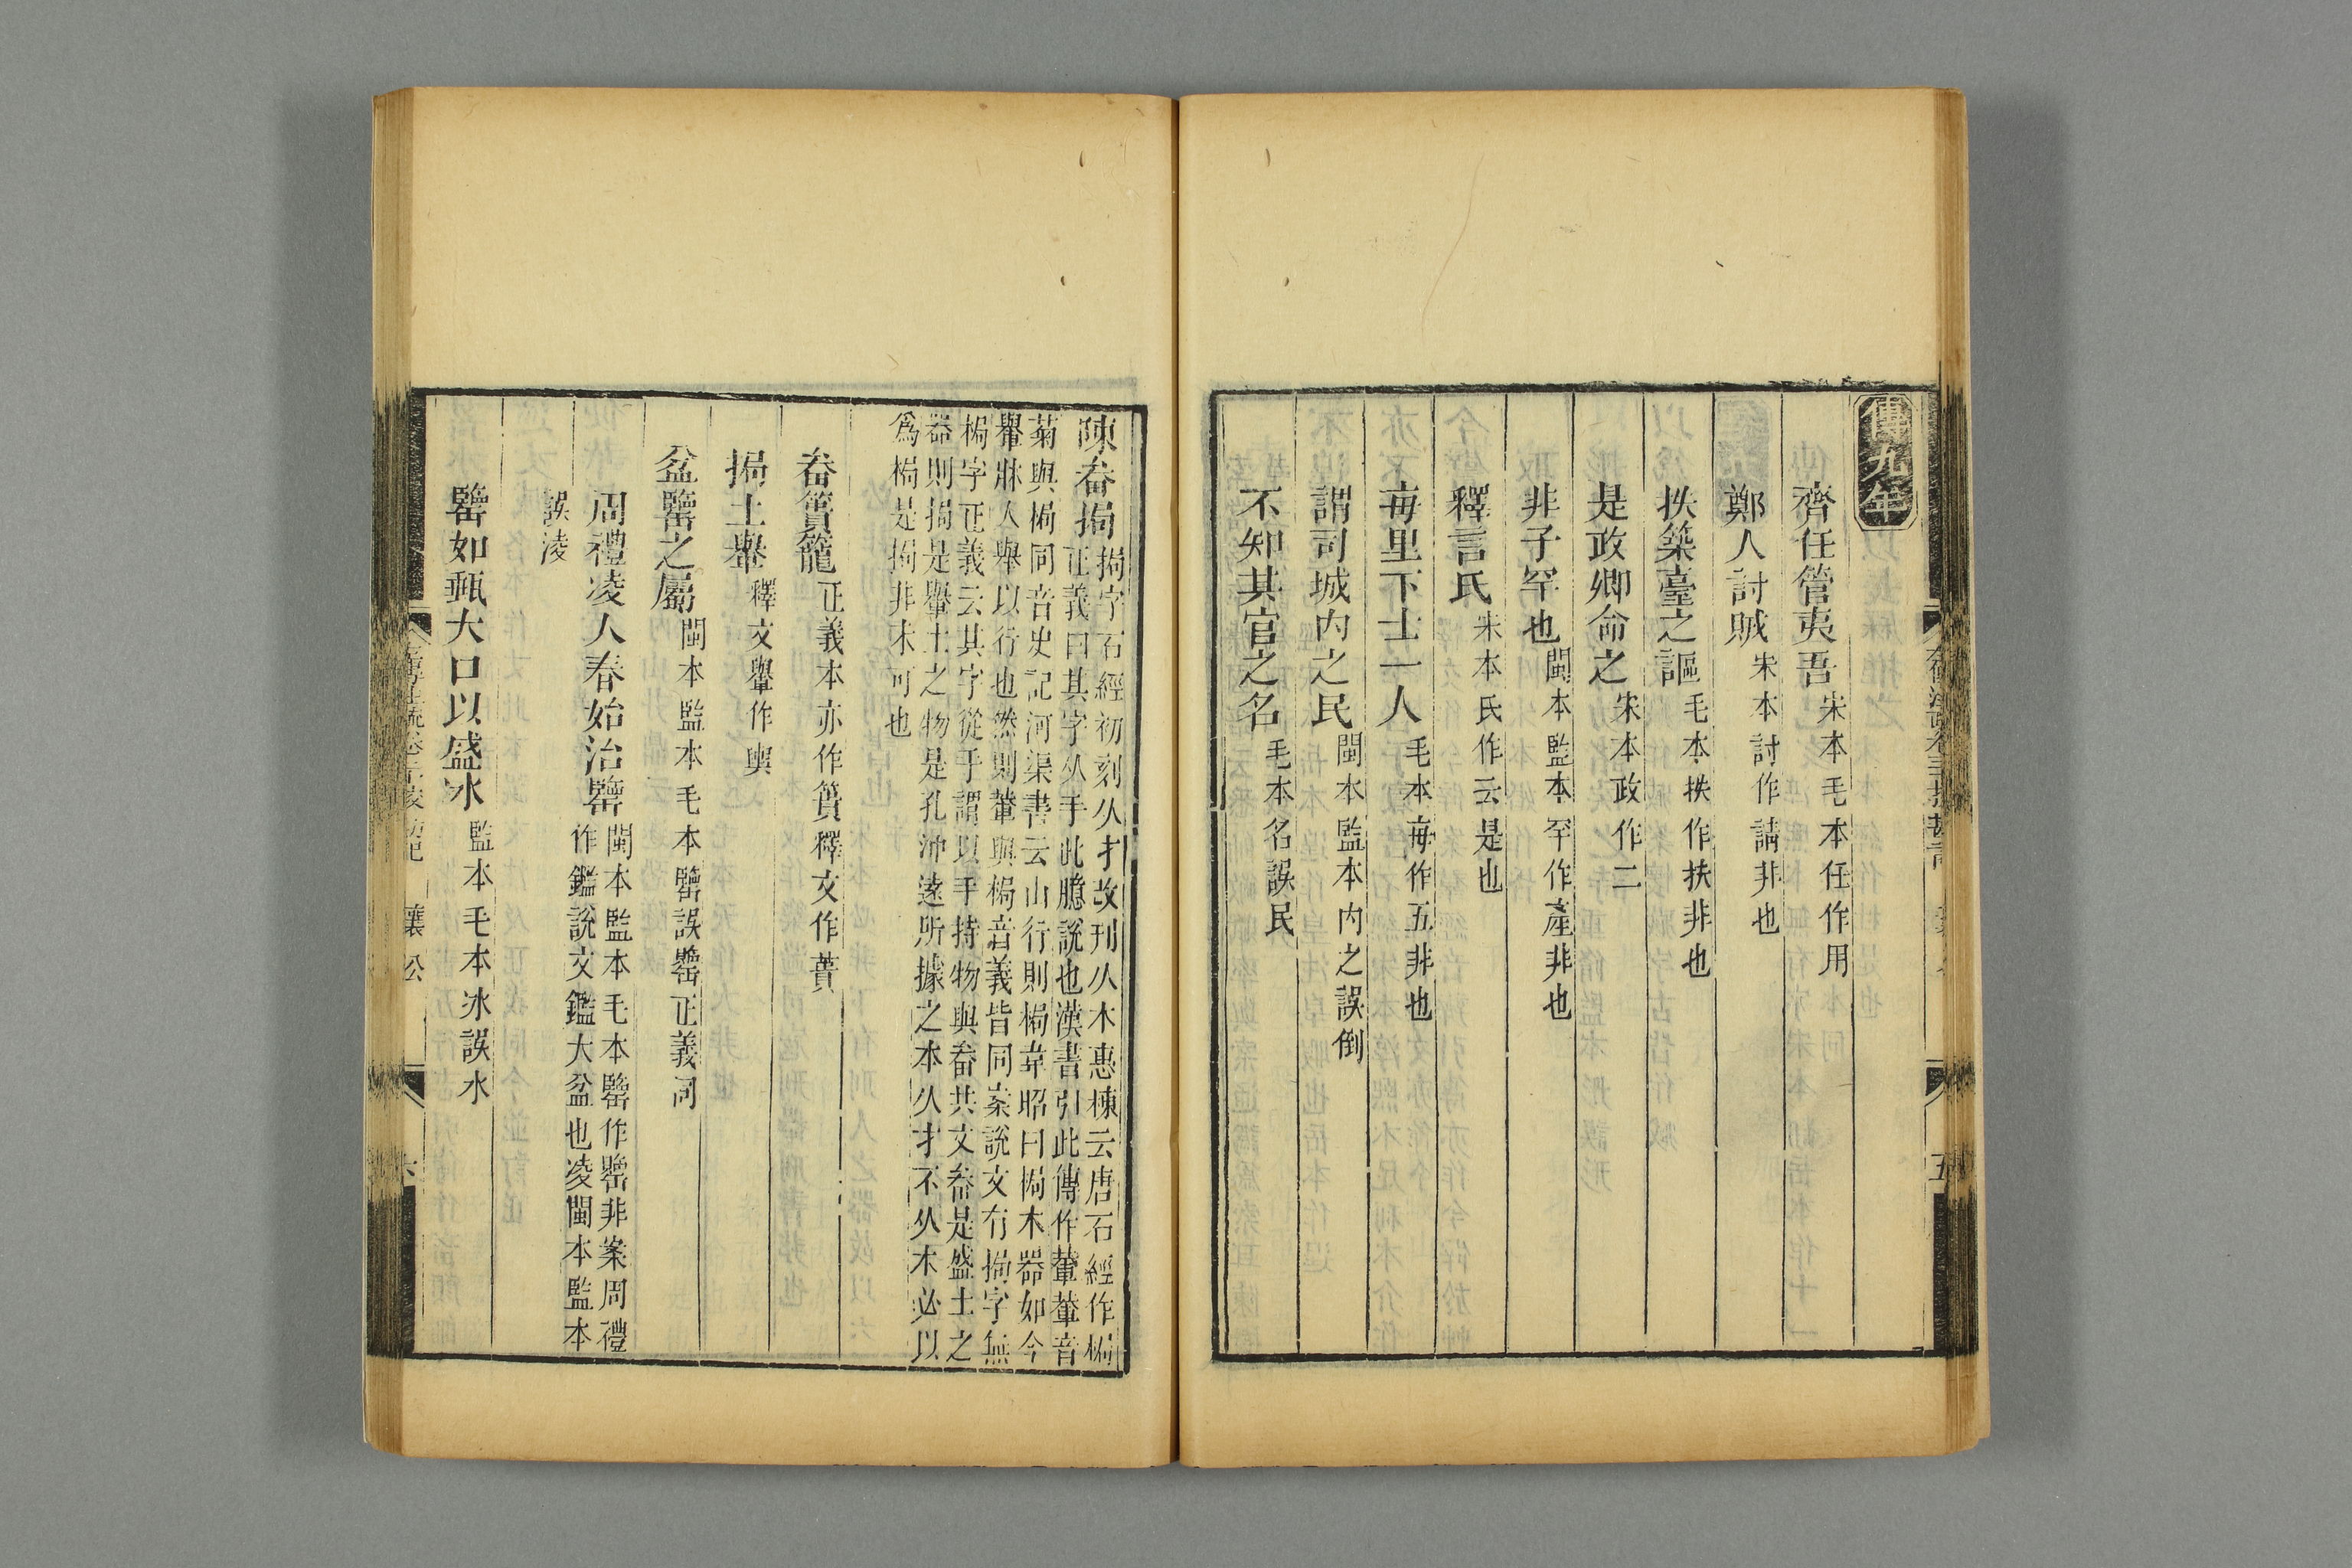 傳九年
齊任管夷吾宋本毛本任作用
鄭人討賊宋本討作請非也
抶築臺之謳毛本抶作扶非也
是政卿命之宋本政作二
非子罕也閩本監本罕作產非也
釋言氏宋本氏作云是也
每里下士一人毛本每作五非也
謂司城內之民閩本監本內之誤倒
不知其官之名毛本名誤民
陳畚挶挶字石經初刻从扌改刊从木惠棟云唐石經作梮
正義曰其字从手此臆說也漢書引此傳作輂輂音
菊與梮同音史記河渠書云山行則梮韋昭曰梮木器如今
轝牀人舉以行也然則輂與梮音義皆同案說文有挶字無
梮字正義云其字從手謂以手持物與畚共文畚是盛土之
器則挶是轝土之物是孔沖遠所據之本从扌不从木必以
爲梮是挶非未可也
畚簣籠正義本亦作簣釋文作蕢
挶土轝釋文轝作輿
盆罌之屬閩本監本毛本罌誤罌正義同
周禮凌人春始治鑑閩本監本毛本鑑作罌非案周禮
作鑑說文鑑大盆也凌閩本監本
誤淩
罌如甀大口以盛冰監本毛本冰誤水
襄公
六
五